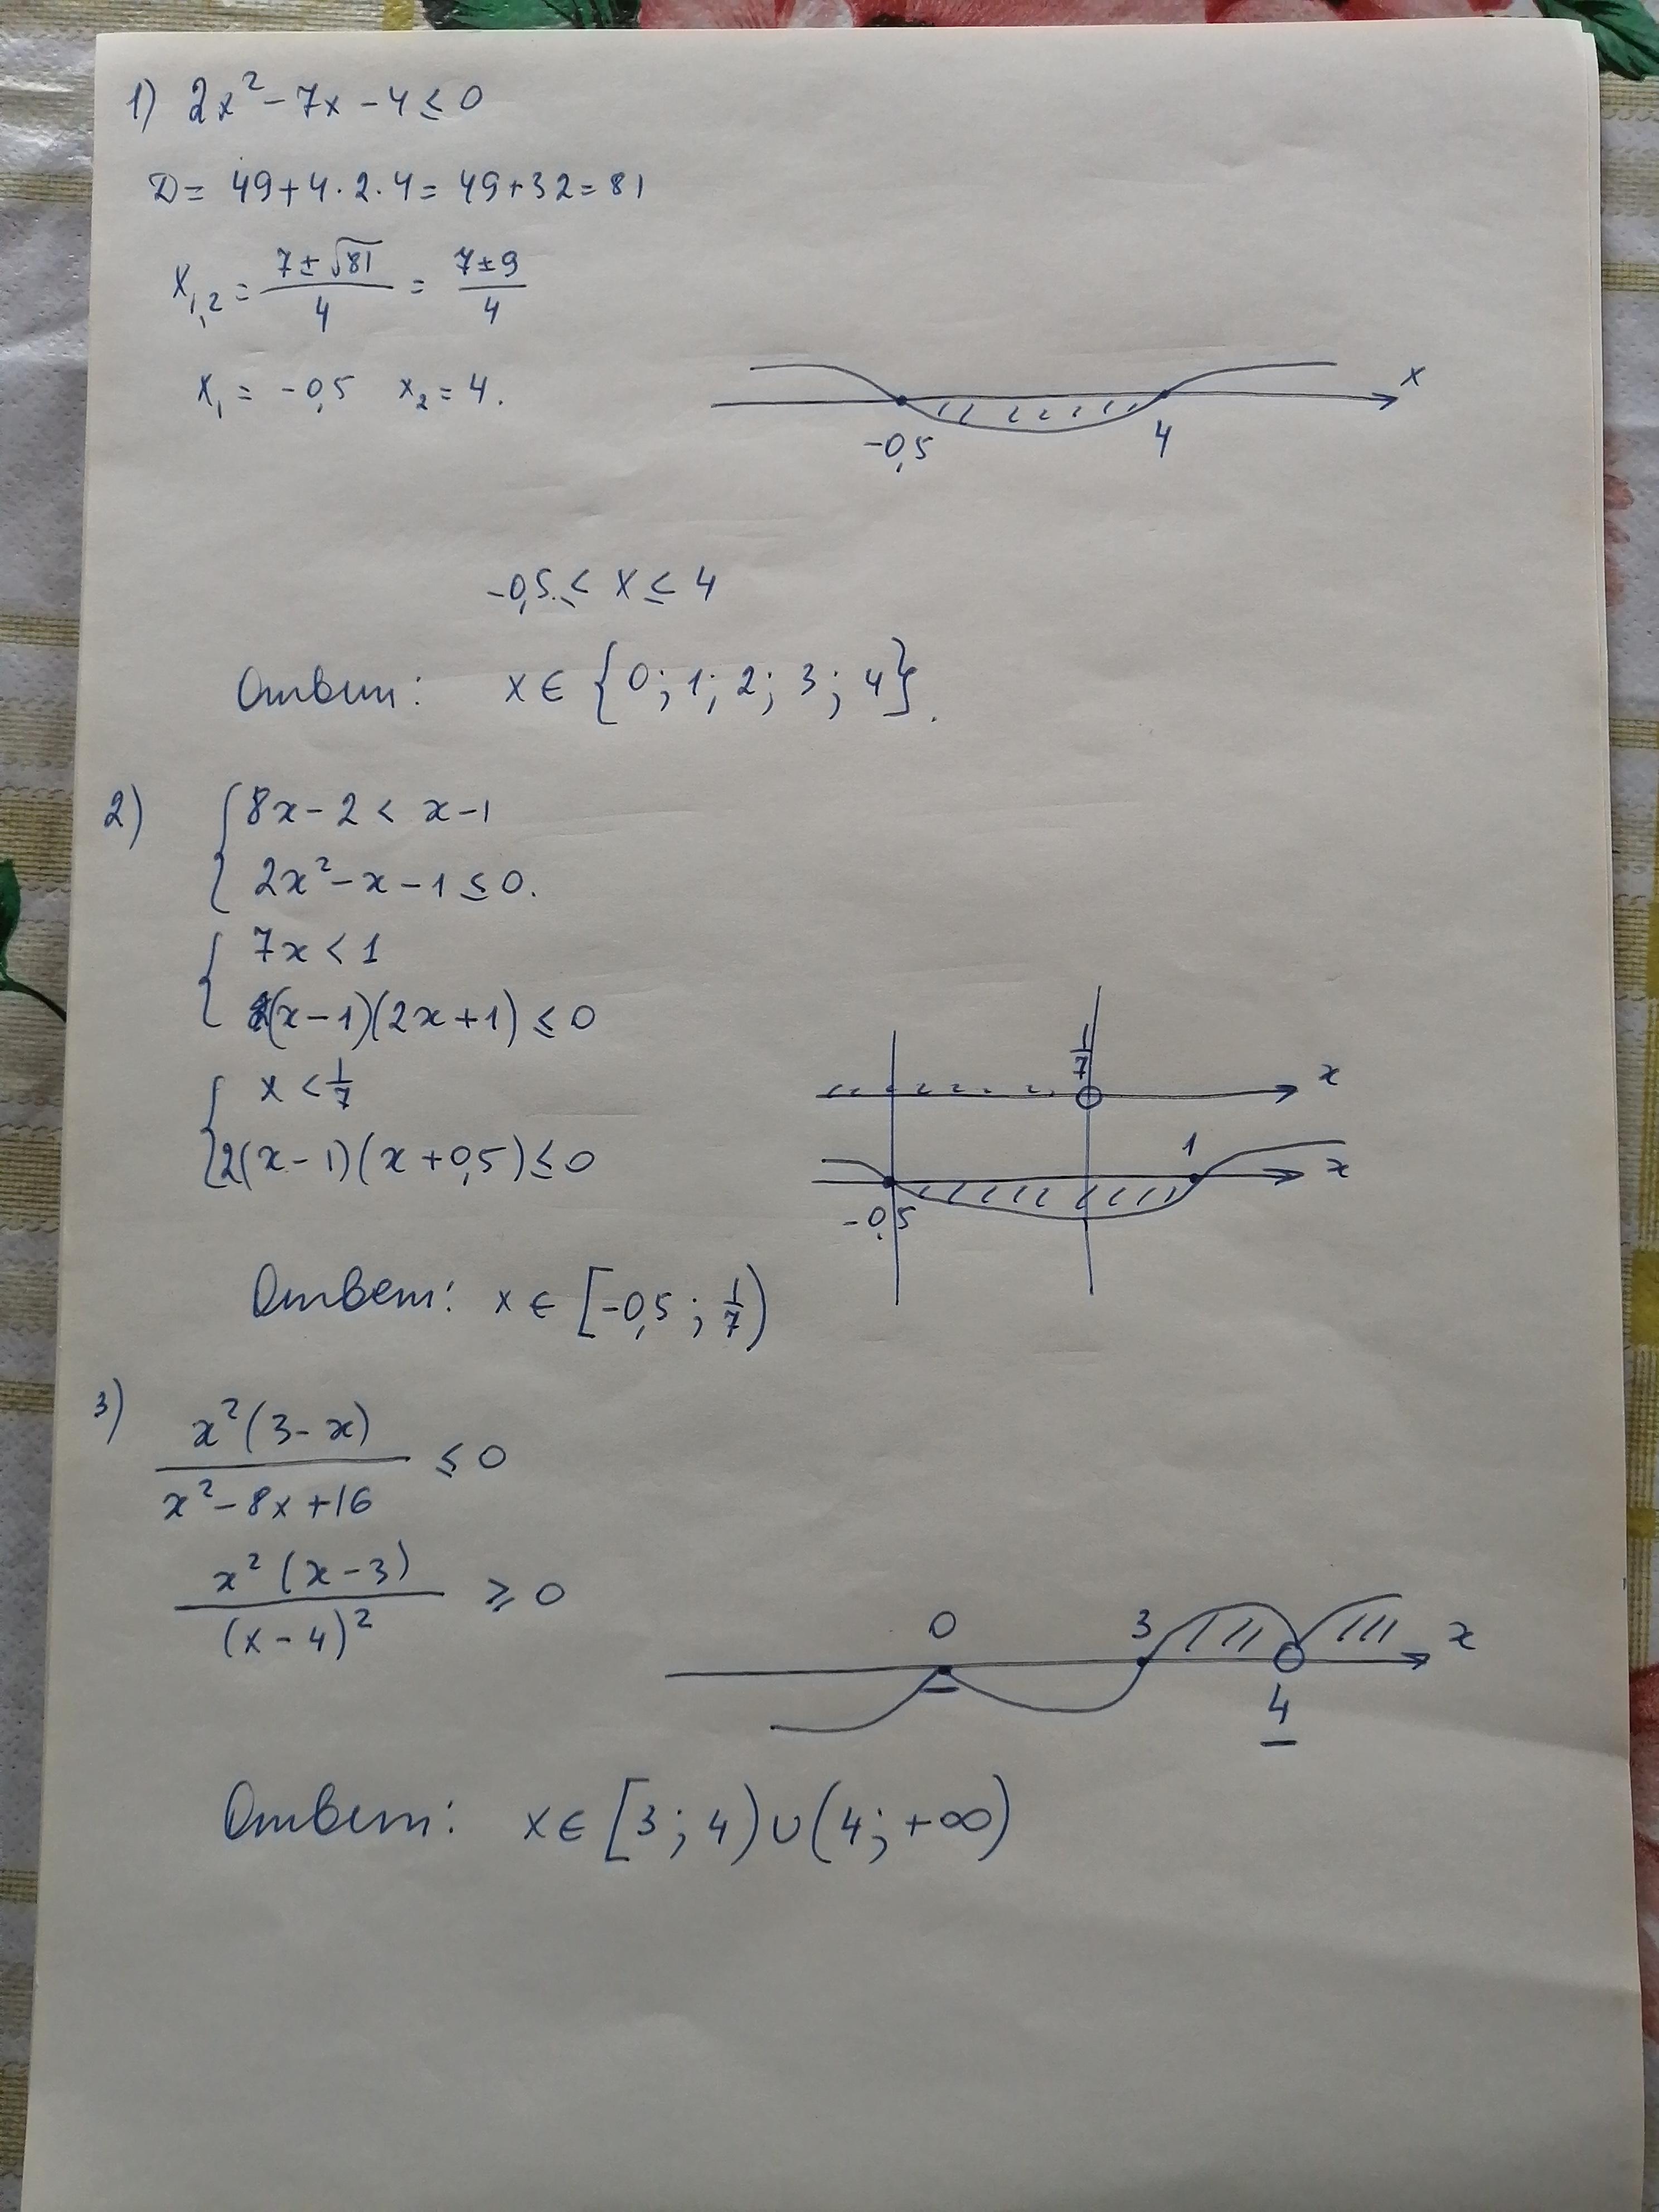 1) 2x² - 7x - 4 ≤ 0
D = 49 + 4·2·4 = 49 + 32 = 81
x₁,₂ = (7 ± √81)/4 = (7 ± 9)/4
x₁ = -0,5 x₂ = 4.
-0,5 4 x
-0,5 ≤ x ≤ 4
Ответ: x ∈ {0; 1; 2; 3; 4}.
2) { 8x - 2 < x - 1
2x² - x - 1 ≤ 0.
{ 7x < 1
(x - 1)(2x + 1) ≤ 0
{ x < 1/7
2(x - 1)(x + 0,5) ≤ 0
1/7 x
-0,5 1 x
Ответ: x ∈ [-0,5; 1/7)
3) x²(3 - x)/(x² - 8x + 16) ≤ 0
x²(x - 3)/(x - 4)² ⩾ 0
0 3 4 x
Ответ: x ∈ [3; 4) ∪ (4; +∞)